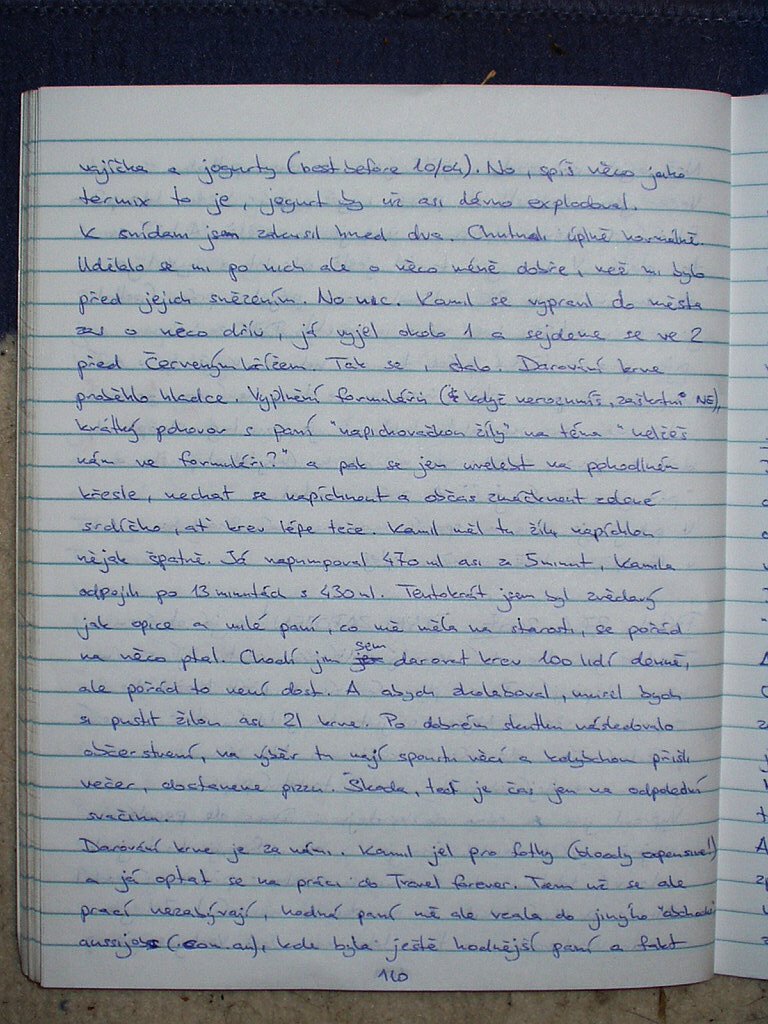 vajíčka a jogurty (best before 10/04). No, spíš něco jako
termix to je, jogurt by už asi dávno explodoval.
K snídani jsem zakusil hned dva. Chutnali úplně normálně.
Udělalo se mi po nich ale o něco méně dobře, než mi bylo
před jejich snězením. No nic. Kamil se vypravil do města
o něco dřív, já vyjel okolo 1 a sejdeme se ve 2
před Červeným křížem. Tak se i stalo. Darování krve
proběhlo hladce. Vyplnění formulářů (když nerozumíš, zaškrtni NE),
krátký pohovor s paní "napichovačkou žíly" na téma "nelžeš
nám ve formuláři?" a pak se jen uvelebit na pohodlném
křesle, nechat se napíchnout a občas zmáčknout
srdíčko, ať krev lépe teče. Kamil měl tu žílu napíchlou
nějak špatně. Já napumpoval 470 ml asi za 5 minut, Kamila
odpojili po 13 minutách s 430 ml. Tentokrát jsem byl zvědavý
jak opice a milé paní, co mě měla na starosti, se pořád
na něco ptal. Chodí jim sem darovat krev 100 lidí denně,
ale pořád to není dost. A abych zkolaboval, musel bych
si pustit žilou asi 2l krve. Po dobrém skutku následovalo
občerstvení, na výběr tu mají spoustu věcí a kdybychom přišli
večer, dostaneme pizzu. Škoda, teď je čas jen na odpolední
svačinu.
Darování krve je za námi. Kamil jel pro fotky (bloody expensive!)
a já optat se na práci do Travel forever. Tam už se ale
prací nezabývají, hodná paní mě ale vzala do jinýho obchodu
aussijobs (.com.au), kde byla ještě hodnější paní a fakt
140